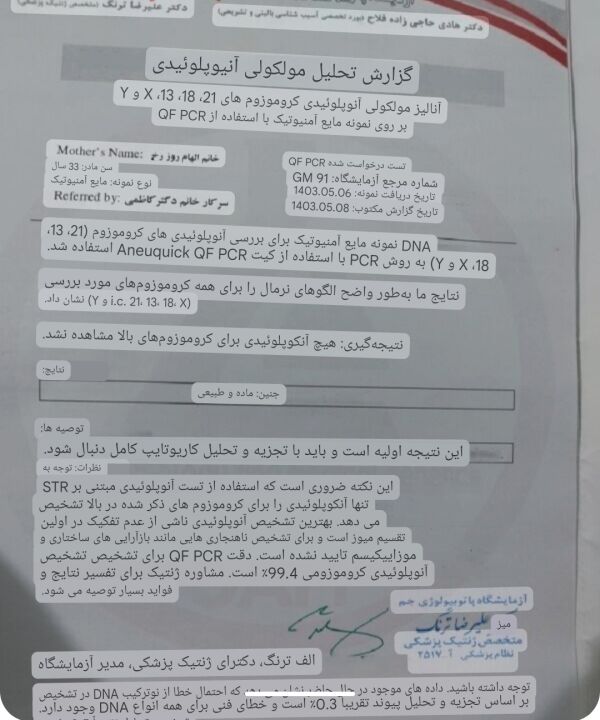 دکتر علیرضا ترنگ (متخصص ژنتیک پزشکی)
دکتر هادی حاجی زاده فلاح (بورد تخصصی آسیب شناسی بالینی و تشریحی)
گزارش تحلیل مولکولی آنیوپلوئیدی
آنالیز مولکولی آنوپلوئیدی کروموزوم های 21، 18، 13، X و Y
بر روی نمونه مایع آمنیوتیک با استفاده از QF PCR
Mother's Name: خانم الهام روز رخ
سن مادر: 33 سال
نوع نمونه: مایع آمنیوتیک
Referred by: سرکار خانم دکترکاظمی
تست درخواست شده QF PCR
شماره مرجع آزمایشگاه: GM 91
تاریخ دریافت نمونه: 1403.05.06
تاریخ گزارش مکتوب: 1403.05.08
DNA نمونه مایع آمنیوتیک برای بررسی آنوپلوئیدی های کروموزوم (21، 13،
18، X و Y) به روش PCR با استفاده از کیت Aneuquick QF PCR استفاده شد.
نتایج ما به‌طور واضح الگوهای نرمال را برای همه کروموزوم‌های مورد بررسی
(i.c. 21، 13، 18، X و Y) نشان داد.
نتیجه‌گیری: هیچ آنکوپلوئیدی برای کروموزوم‌های بالا مشاهده نشد.
نتایج:
جنین: ماده و طبیعی
توصیه ها:
این نتیجه اولیه است و باید با تجزیه و تحلیل کاریوتایپ کامل دنبال شود.
نظرات: توجه به
این نکته ضروری است که استفاده از تست آنوپلوئیدی مبتنی بر STR
تنها آنکوپلوئیدی را برای کروموزوم های ذکر شده در بالا تشخیص
می دهد. بهترین تشخیص آنوپلوئیدی ناشی از عدم تفکیک در اولین
تقسیم میوز است و برای تشخیص ناهنجاری هایی مانند بازآرایی های ساختاری و
موزاییکیسم تایید نشده است. دقت QF PCR برای تشخیص تشخیص
آنوپلوئیدی کروموزومی 99.4٪ است. مشاوره ژنتیک برای تفسیر نتایج و
فواید بسیار توصیه می شود.
آزمایشگاه پاتوبیولوژی جم
میز علیرضا ترنگ
متخصص ژنتیک پزشکی
نظام پزشکی آ ـ ۲۵۱۷
الف ترنگ، دکترای ژنتیک پزشکی، مدیر آزمایشگاه
توجه داشته باشید. داده های موجود در حال حاضر نشان می دهد که احتمال خطا از نوترکیب DNA در تشخیص
بر اساس تجزیه و تحلیل پیوند تقریبا 0.3٪ است و خطای فنی برای همه انواع DNA وجود دارد.